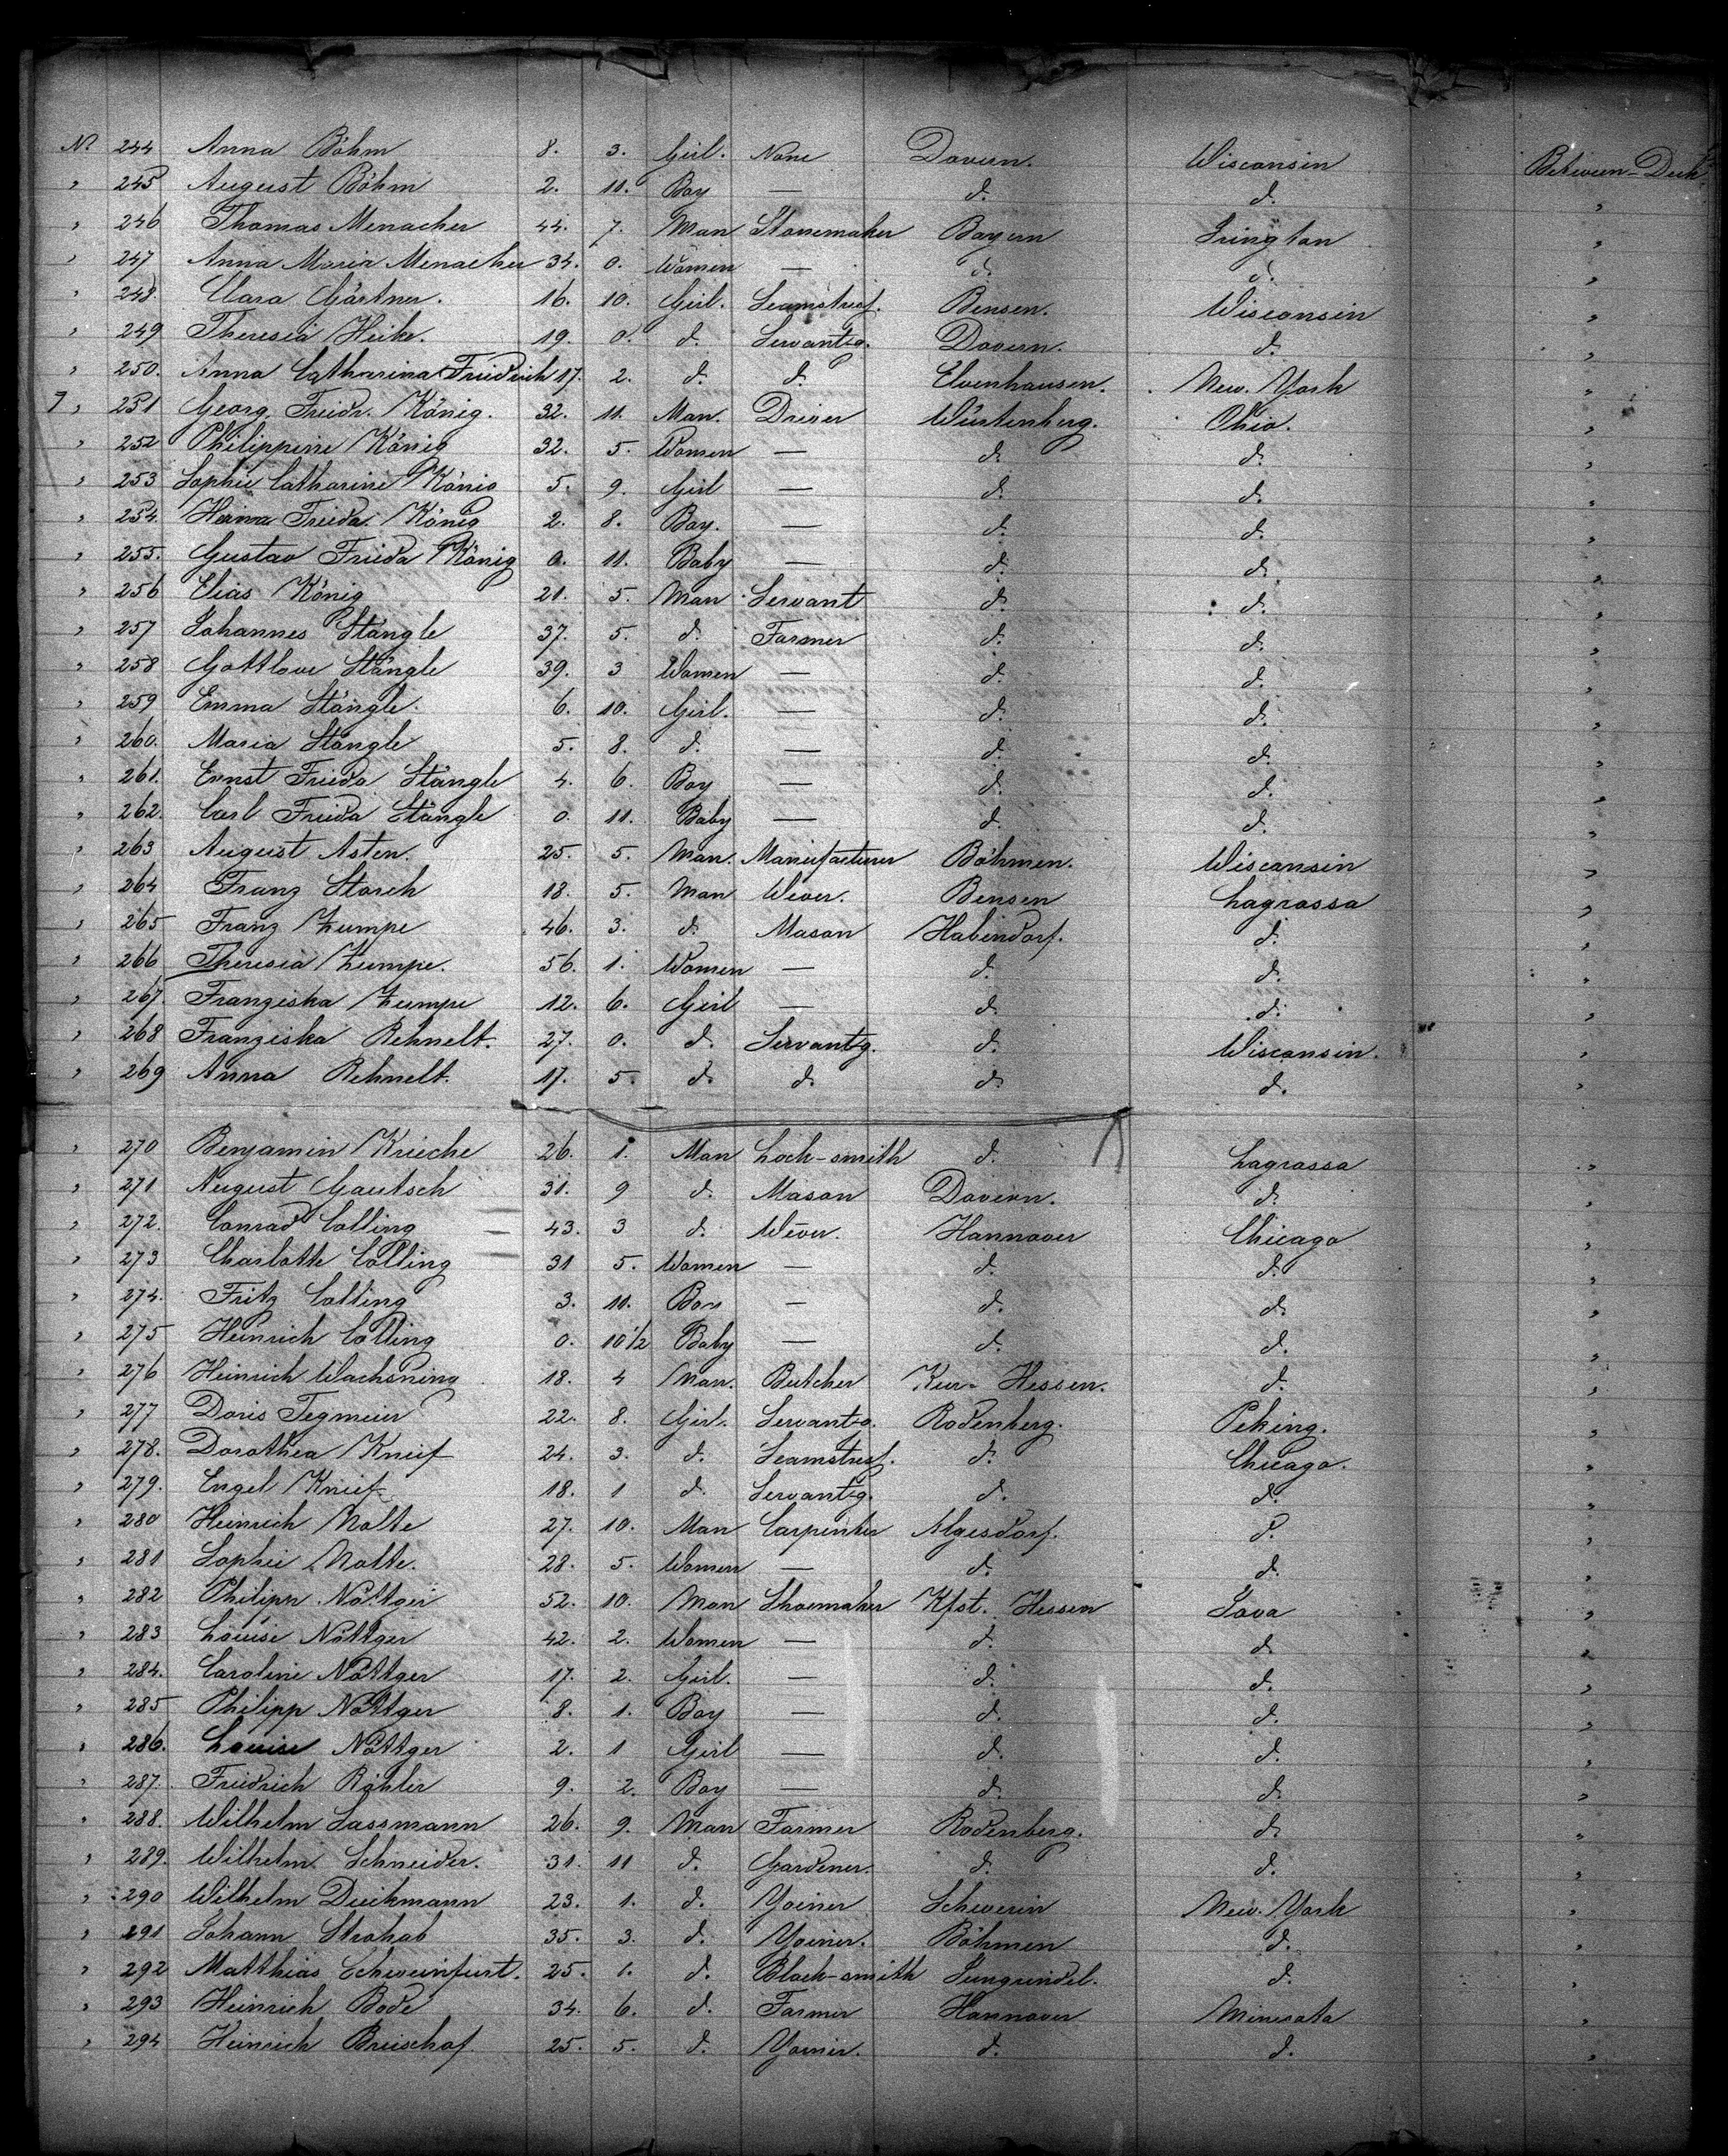 No 244 Anna Böhm 8. 3. Girl. None Davern. Wisconsin Between-Deck
" 245 August Böhm 2. 11. Boy — d. d. "
" 246 Thomas Menacher 44. 7. Man Stonemaker Bayern Irington "
" 247 Anna Maria Menacher 34. 0. Women — d. d. "
" 248. Clara Gärtner. 16. 10. Girl. Seamstress. Bensen. Wisconsin "
" 249 Theresia Heike. 19. 0. d. Servantg. Davern. d. "
" 250. Anna Catharina Friedrich 17. 2. d. d. Elvenhausen. New-York "
" 251 Georg Friedr. König. 32. 11. Man. Driver Würtenberg. Ohio. "
" 252 Philippine König 32. 5. Women — d. d. "
" 253 Sophie Catharine König 5. 9. Girl — d. d. "
" 254. Friedr. König 2. 8. Boy. — d. d. "
" 255. Gustav Frieda König 0. 11. Baby — d. d. "
" 256 Elias König 21. 5. Man Servant d. d. "
" 257 Johannes Stängle 37. 5. d. Farmer d. d. "
" 258 Gottlove Stängle 39. 3 Women — d. d. "
" 259 Emma Stängle. 6. 10. Girl. — d. d. "
" 260. Maria Stängle 5. 8. d. — d. d. "
" 261. Ernst Frieda Stängle 4. 6. Boy — d. d. "
" 262. Carl Frieda Stängle 0. 11. Baby — d. d. "
" 263 August Asten. 25. 5. Man. Manufacturer Böhmen. Wisconsin "
" 264 Franz Storch 18. 5. Man Wever. Bensen Lagrossa "
" 265 Franz Zumpe 46. 3. d. Mason Habindorf. d. "
" 266 Theresia Zumpe. 56. 1. Women — d. d. "
" 267 Franziska Zumpe 12. 6. Girl — d. d. "
" 268 Franziska Rehnelt. 27. 0. d. Servantg. d. Wisconsin. "
" 269 Anna Rehnelt. 17. 5. d. d. d. d. "
" 270 Benjamin Krieche 26. 1. Man Lock-smith d. Lagrossa "
" 271 August Gautsch 31. 9 d. Mason Davern. d. "
" 272. Conrad Cölling 43. 3 d. Wever. Hannover Chicago "
" 273 Charlotte Cölling 31 5. Women — d. d. "
" 274. Fritz Cölling 3. 11. Boy — d. d. "
" 275 Heinrich Cölling 0. 10½ Baby — d. d. "
" 276 Heinrich Wachsning 18. 4 Man. Butcher Kur-Hessen. d. "
" 277 Doris Tegmeier 22. 8. Girl. Servantg. Rodenberg. Peking. "
" 278. Dorothea Knief 24. 3. d. Seamstress. d. Chicago. "
" 279. Engel Knief 18. 1 d. Servantg. d. d. "
" 280 Heinrich Nolte 27. 10. Man Carpenter Algesdorf. d. "
" 281 Sophie Nolte. 28. 5. Women — d. d. "
" 282 Philipp Nöttger 52. 10. Man Shoemaker Kfst. Hessen Iova "
" 283 Louise Nöttger 42. 2. Women — d. d "
" 284. Caroline Nöttger 17. 2. Girl. — d. d. "
" 285 Philipp Nöttger 8. 1. Boy — d. d. "
" 286. Louise Nöttger 2. 1 Girl — d. d. "
" 287. Friedrich Röhler 9. 2. Boy — d. d. "
" 288. Wilhelm Sassmann 26. 9. Man Farmer Rodenberg. d. "
" 289. Wilhelm Schneider. 31. 11 d. Gardener. d. d. "
" 290 Wilhelm Dieckmann 23. 1. d. Yoiner Schwerin New-York "
" 291 Johann Strohab 35. 3. d. Yoiner. Böhmen d. "
" 292 Matthias Schweinfurt. 25. 1. d. Black-smith d. "
" 293 Heinrich Bode 34. 6. d. Farmer Hannover Minesota "
" 294 Heinrich Breischof 25. 5. d. Yoiner. d. d. "